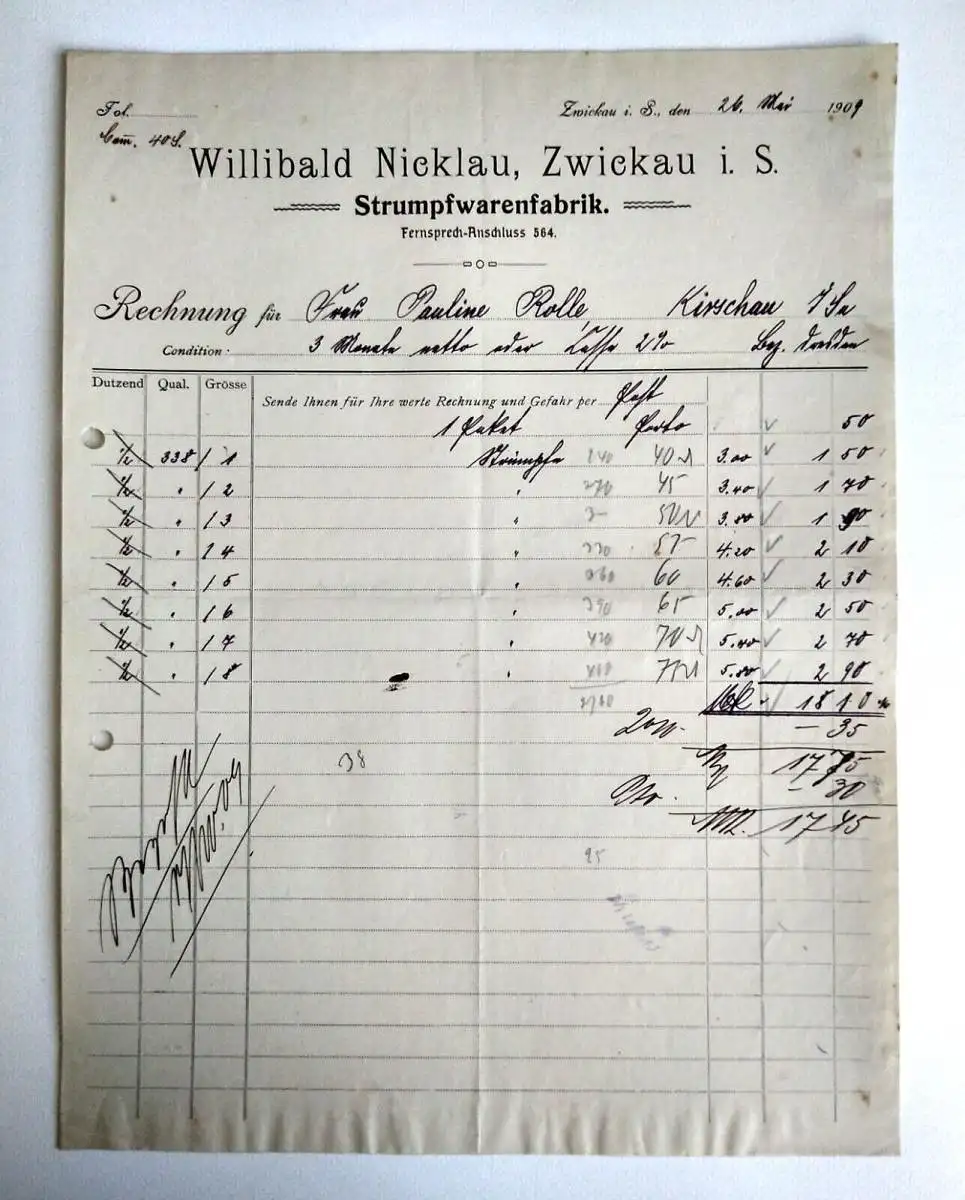 Fol.
Zwickau i. S., den 26. Mai 1909
Com. 408.
Willibald Nicklau, Zwickau i. S.
Strumpfwarenfabrik.
Fernsprech-Anschluss 564.
Rechnung für Frau Pauline Rolle, Kirschau i/Sa
Condition: 3 Monate netto oder Cassa 2% Bez. Dresden
Dutzend Qual. Grösse
Sende Ihnen für Ihre werte Rechnung und Gefahr per Post
1 Paket Porto 50
1/2 338 / 1 Strümpfe 240 40 3.00 1 50
1/2 " / 2 " 270 45 3.40 1 70
1/2 " / 3 " 3– 50 3.80 1 90
1/2 " / 4 " 330 55 4.20 2 10
1/2 " / 5 " 360 60 4.60 2 30
1/2 " / 6 " 390 65 5.00 2 50
1/2 " / 7 " 420 70 5.40 2 70
1/2 " / 8 " 5.80 2 90
Mk 18 10
– 35
17 75
38 – 30
17 45
95